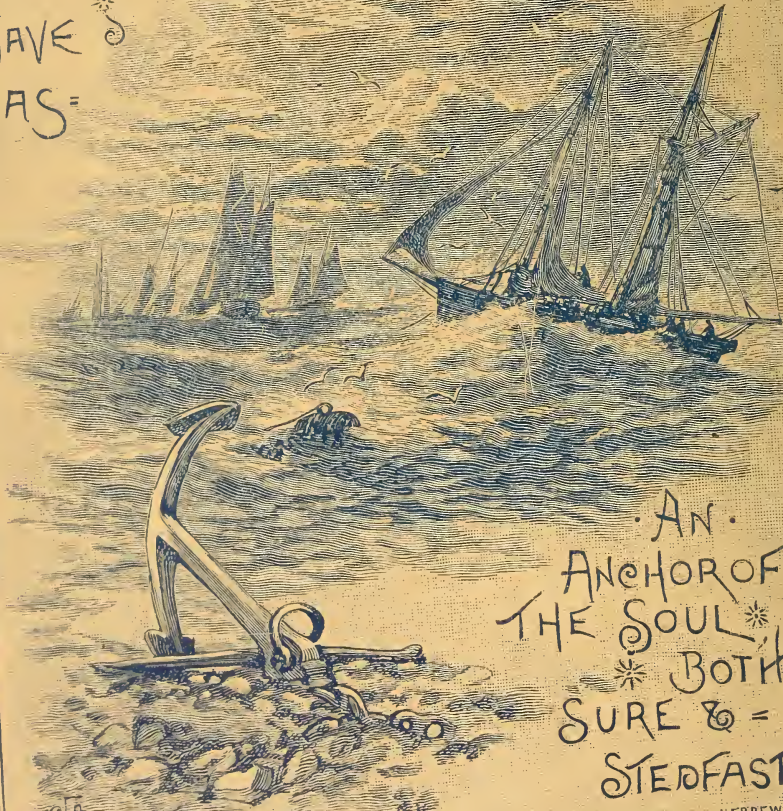 AVE
AS=
· AN ·
ANCHOR OF
THE SOUL
BOTH
SURE & =
STEDFAST